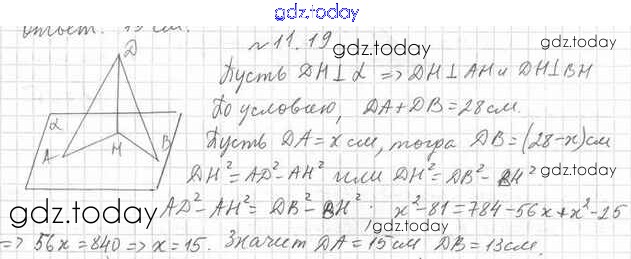 gdz.today
Ответ: 15 см.
№11.19
gdz.today
D
α
A
H
B
Пусть DH⊥α => DH⊥AH и DH⊥BH
По условию, DA+DB=28см.
gdz.today
Пусть DA=x см, тогда DB=(28-x)см
DH²=AD²-AH² или DH²=DB²-BH²
gdz.today
AD²-AH²=DB²-BH². x²-81=784-56x+x²-25
gdz.today
gdz.today
=> 56x=840 => x=15. Значит DA=15см DB=13см.